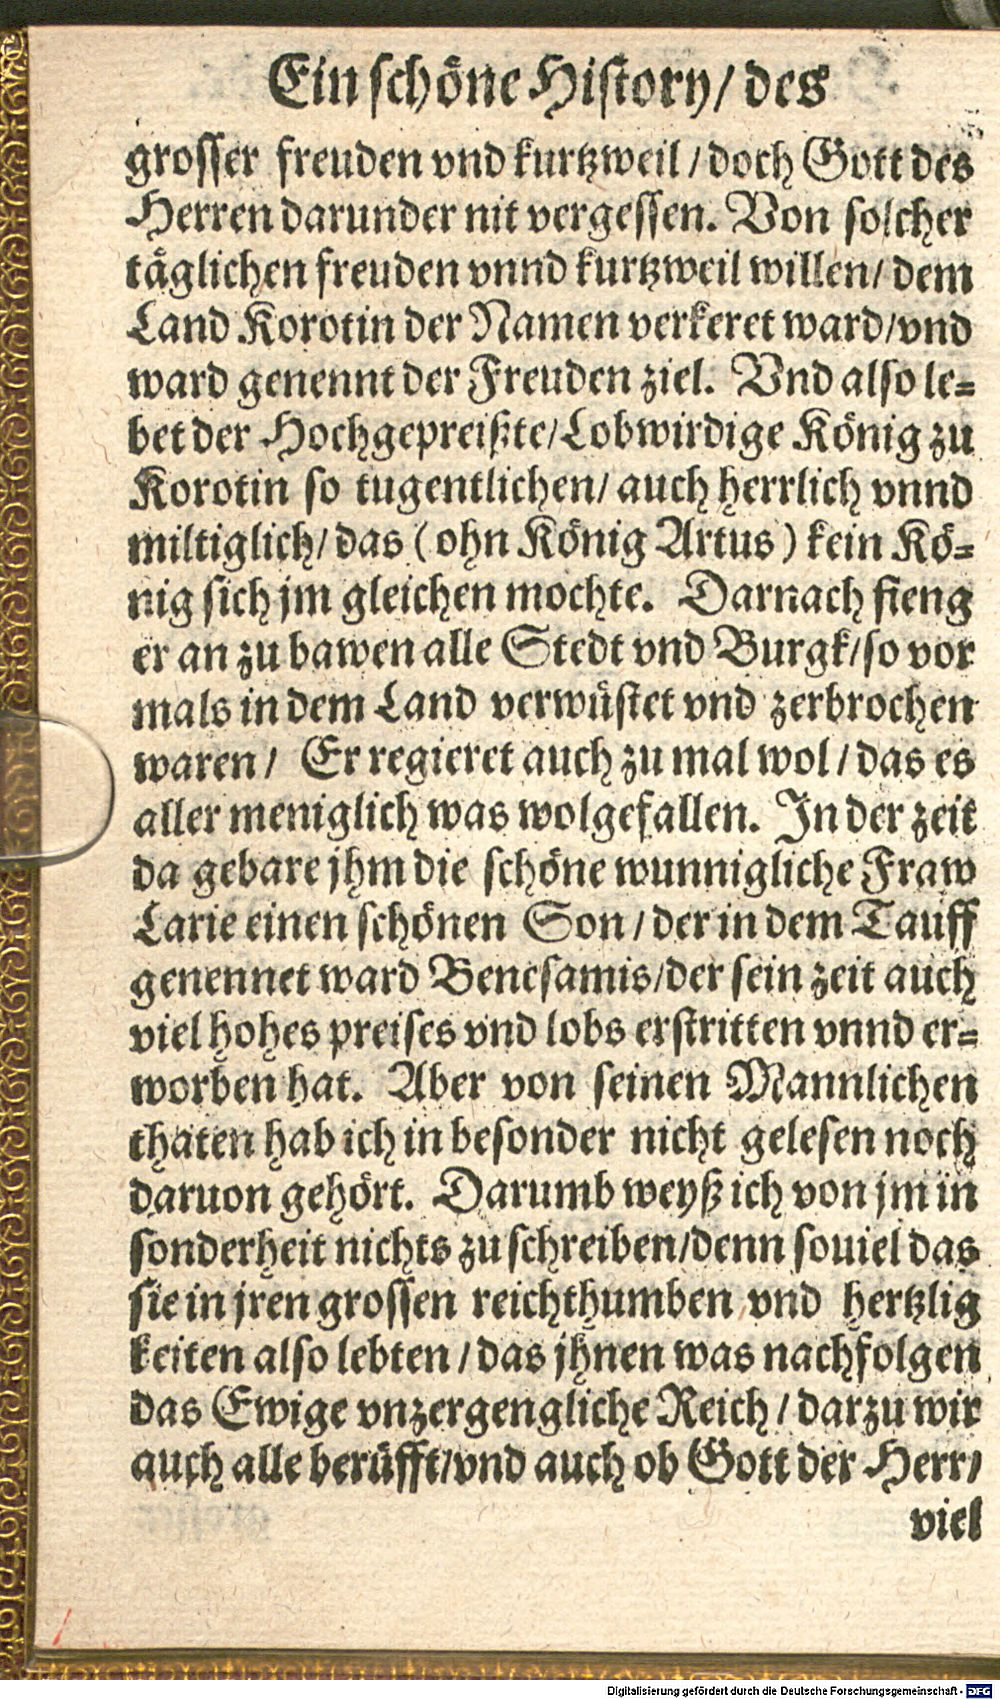 Ein schöne History/ des
grosser freuden vnd kurtzweil / doch Gott des
Herren darunder nit vergessen. Von solcher
täglichen freuden vnnd kurtzweil willen/ dem
Land Korotin der Namen verkeret ward/vnd
ward genennt der Freuden ziel. Vnd also le-
bet der Hochgepreißte/Lobwirdige König zu
Korotin so tugentlichen/ auch herrlich vnnd
miltiglich/ das ( ohn König Artus ) kein Kö-
nig sich jm gleichen mochte. Darnach fieng
er an zu bawen alle Stedt vnd Burgk/so vor
mals in dem Land verwüstet vnd zerbrochen
waren / Er regieret auch zu mal wol / das es
aller meniglich was wolgefallen. In der zeit
da gebare jhm die schöne wunnigliche Fraw
Larie einen schönen Son / der in dem Tauff
genennet ward Benesamis/der sein zeit auch
viel hohes preises vnd lobs erstritten vnnd er-
worben hat. Aber von seinen Mannlichen
thaten hab ich in besonder nicht gelesen noch
daruon gehört. Darumb weyß ich von jm in
sonderheit nichts zu schreiben/denn souiel das
sie in jren grossen reichthumben vnd hertzlig
keiten also lebten / das jhnen was nachfolgen
das Ewige vnzergengliche Reich / darzu wir
auch alle berüfft/vnd auch ob Gott der Herr/
viel
Digitalisierung gefördert durch die Deutsche Forschungsgemeinschaft - DFG